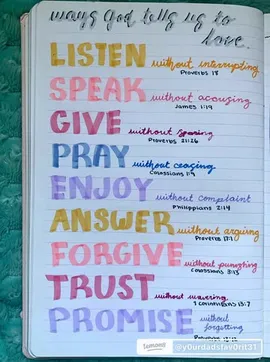 ways God tells us to
love.
LISTEN without interrupting
Proverbs 18
SPEAK without accusing
James 1:19
GIVE without sparing
Proverbs 21:26
PRAY without ceasing
Colossians 1:9
ENJOY without complaint
Philippians 2:14
ANSWER without arguing
Proverbs 17:1
FORGIVE without punishing
Colossians 3:13
TRUST without wavering
1 Corinthians 13:7
PROMISE without
forgetting
Proverbs 13:12